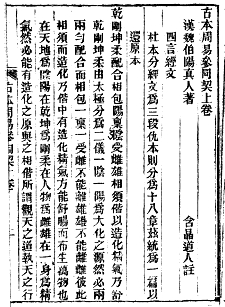 古本周易參同契上卷
漢魏伯陽真人著
含晶道人註
四言經文
杜本分經文為三段仇本則分為十八章兹統為一篇以
還原本
乾剛坤柔配合相包陽稟陰受雌雄相須偕以造化精氣乃舒
乾剛坤柔由太極分為二儀一陰一陽為大化之源然必兩
兩勻配合而相包一稟一受離不能雄雄不能離雌彼此
相須而造化乃偕中有造化精氣方能舒暢而布生萬物也
在天地為陰陽在乾坤為剛柔在人物為雌雄在一身為精
氣然必能有造化之原與之相偕所謂觀天之道執天之行
古本周易參同契 上卷